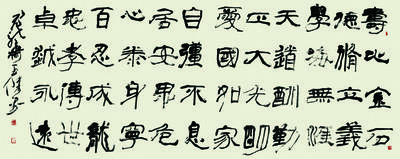 壽比金石
德脩立義
學海無涯
天道酬勤
正大光明
愛國如家
自彊不息
居安思危
心泰身寧
百忍成龍
忠孝傳世
永遠